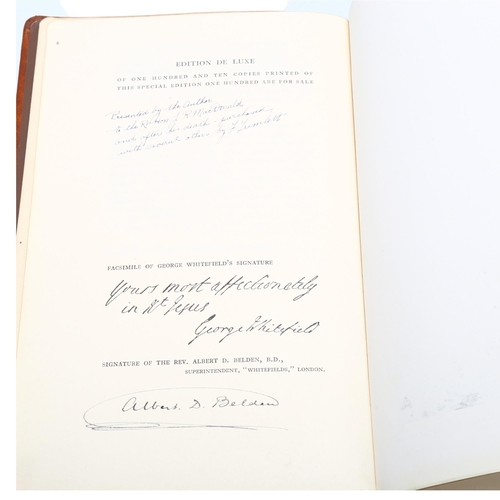 EDITION DE LUXE
OF ONE HUNDRED AND TEN COPIES PRINTED OF
THIS SPECIAL EDITION ONE HUNDRED ARE FOR SALE
Presented by the Author
to the
and after his death purchased
with several others by
FACSIMILE OF GEORGE WHITEFIELD'S SIGNATURE
Yours most affectionately
in Jesus
George Whitefield
SIGNATURE OF THE REV. ALBERT D. BELDEN, B.D.,
SUPERINTENDENT, "WHITEFIELDS," LONDON.
Albert D. Belden